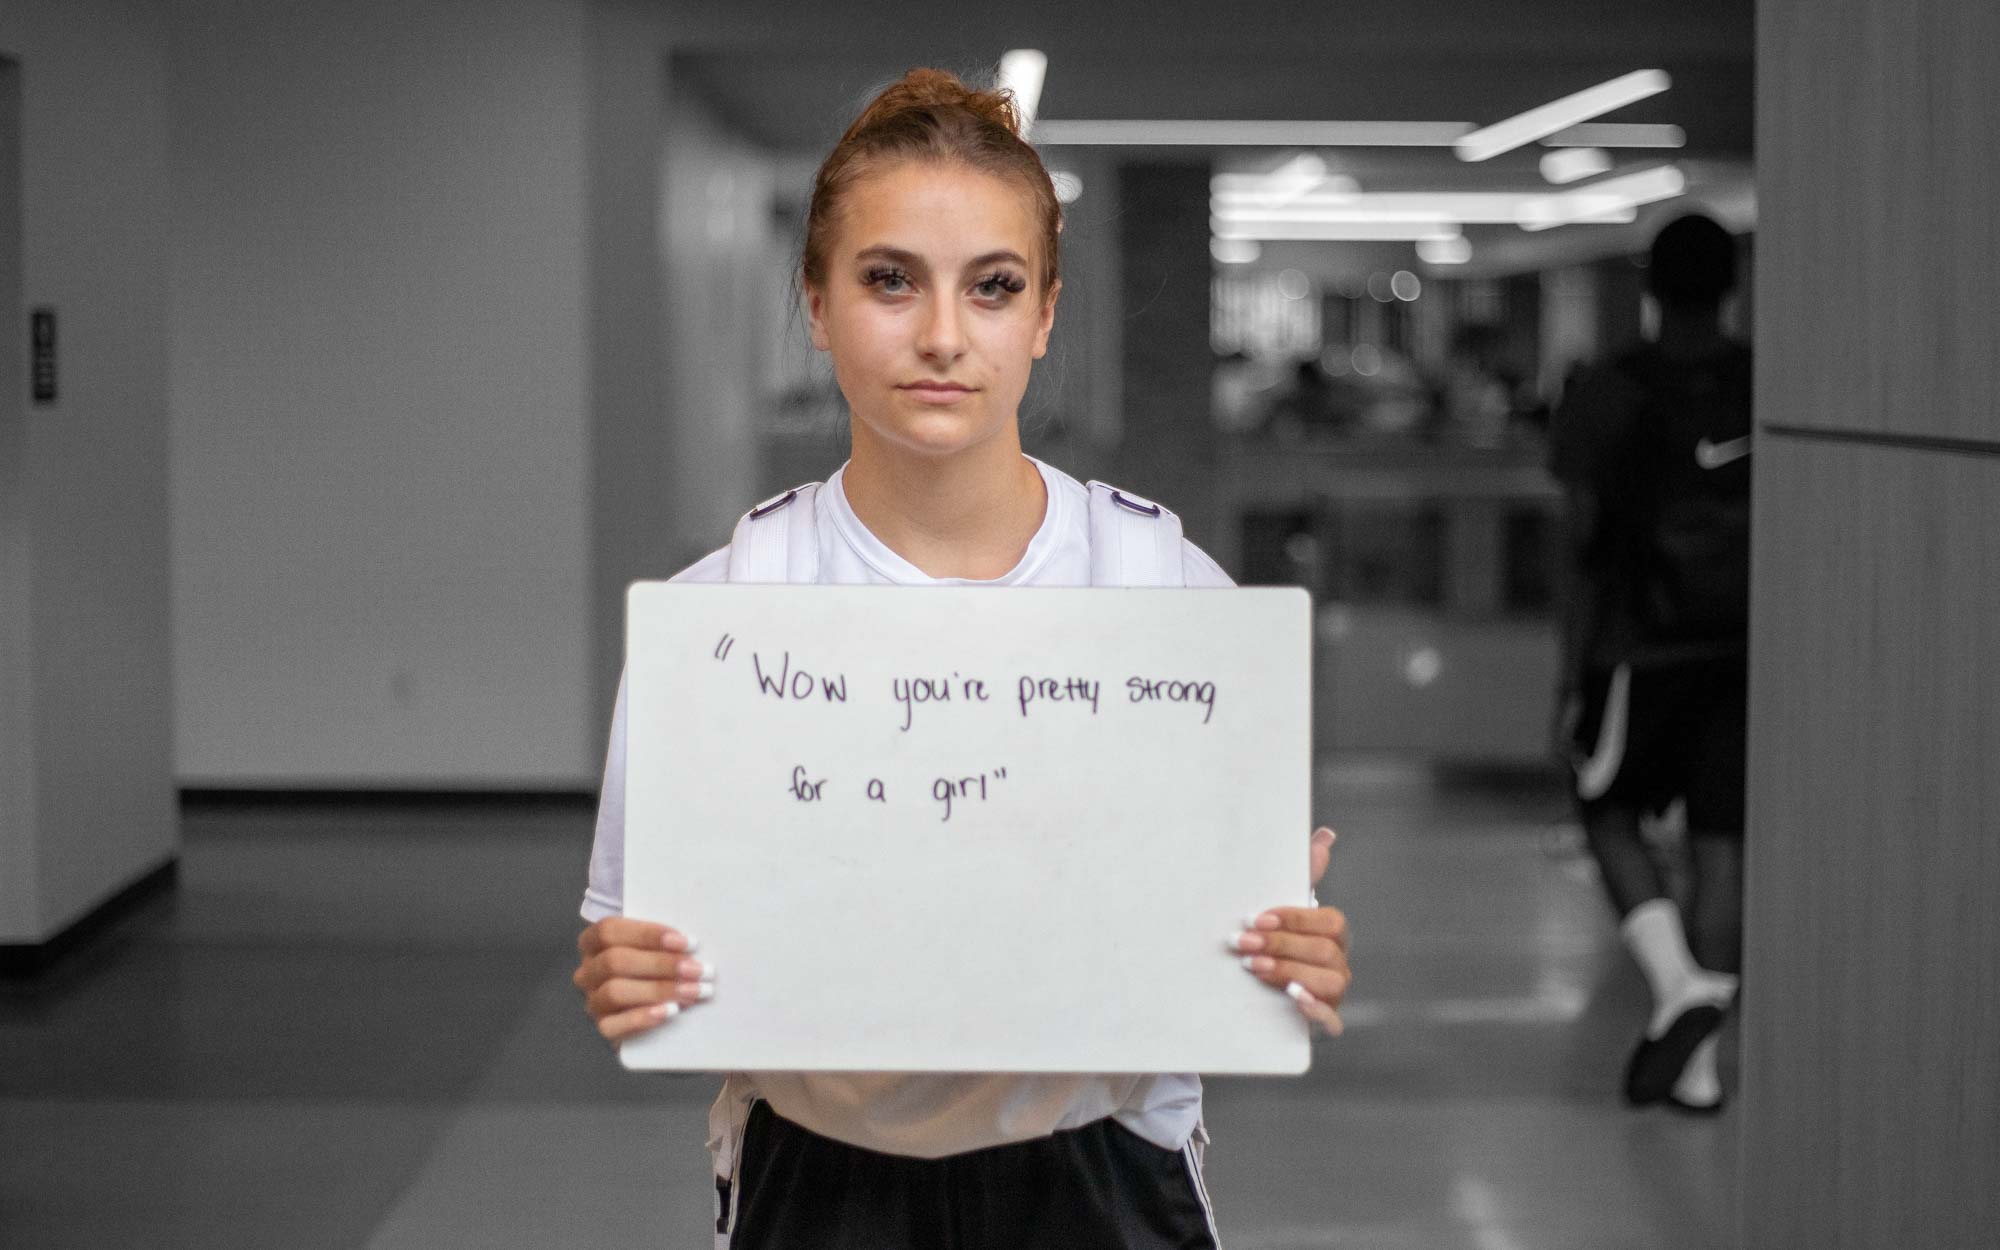 "Wow you're pretty strong
for a girl"